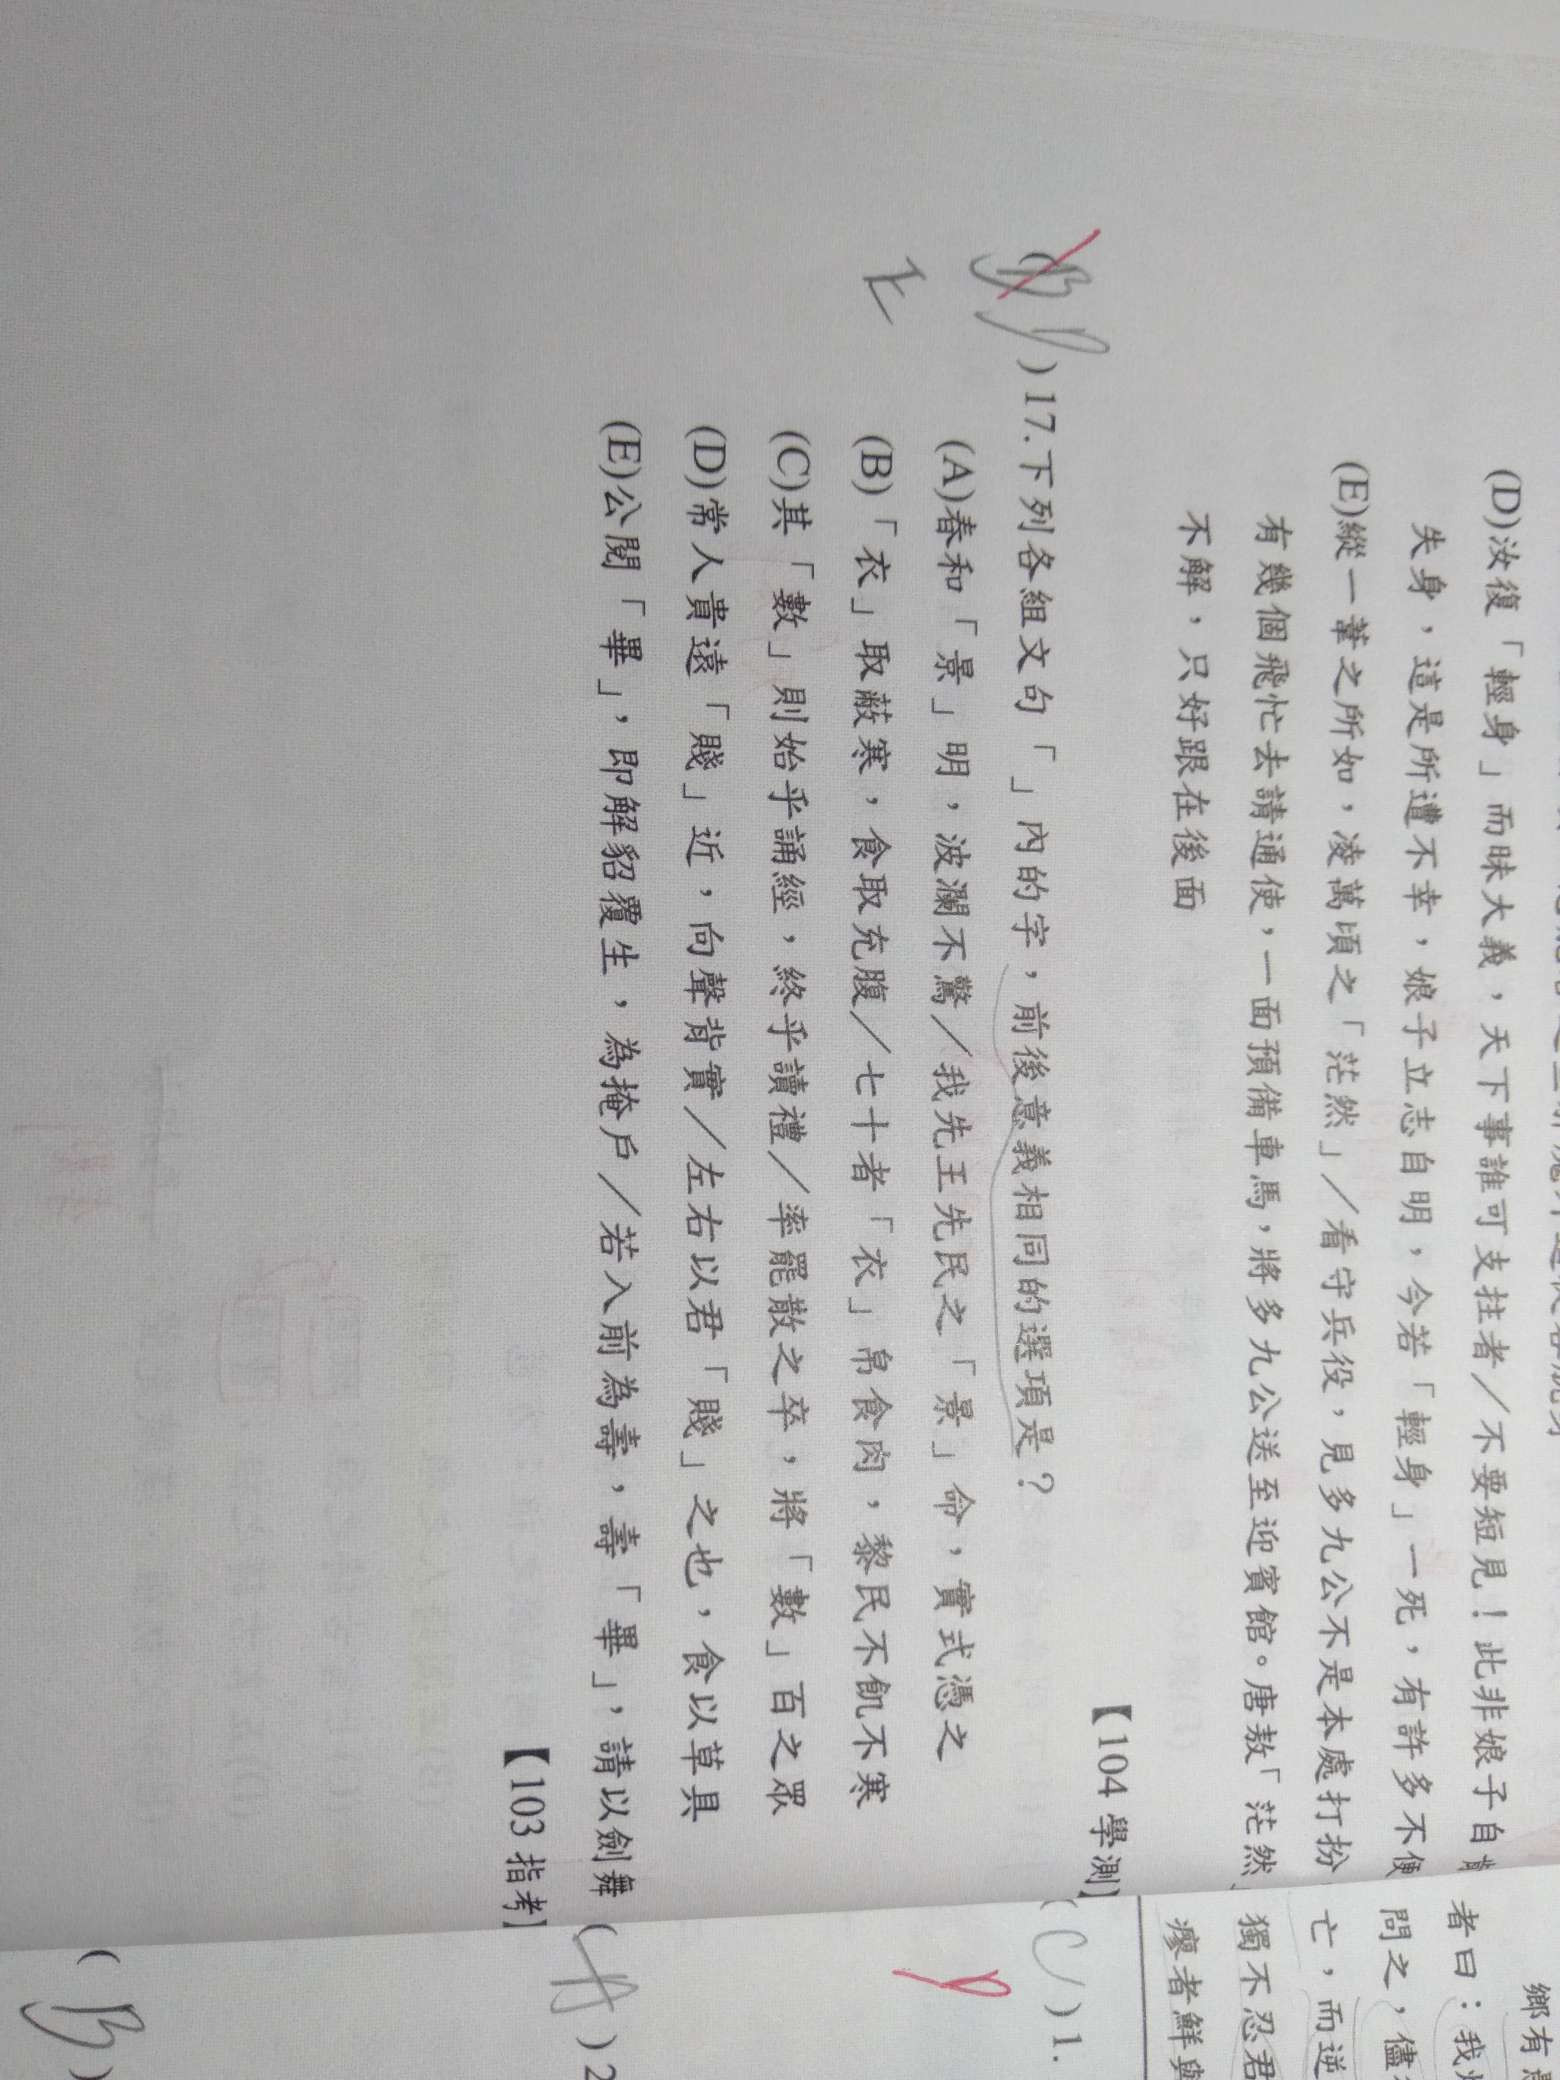 (D)汝復「輕身」而昧大義，天下事誰可支拄者／不要短見！此非娘子自
失身，這是所遭不幸，娘子立志自明，今若「輕身」一死，有許多不便
(E)縱一葦之所如，凌萬頃之「茫然」／看守兵役，見多九公不是本處打扮
有幾個飛忙去請通使，一面預備車馬，將多九公送至迎賓館。唐敖「茫然」
不解，只好跟在後面
【104 學測】
)17.下列各組文句「」內的字，前後意義相同的選項是？
(A)春和「景」明，波瀾不驚／我先王先民之「景」命，實式憑之
(B)「衣」取蔽寒，食取充腹／七十者「衣」帛食肉，黎民不飢不寒
(C)其「數」則始乎誦經，終乎讀禮／率罷散之卒，將「數」百之眾
(D)常人貴遠「賤」近，向聲背實／左右以君「賤」之也，食以草具
(E)公閱「畢」，即解貂覆生，為掩戶／若入前為壽，壽「畢」，請以劍舞
【103 指考】
E
鄉有
者曰：我
問之，儘
亡，而逆
獨不忍君
瘳者鮮與
(C)1.
(A)2
(B)